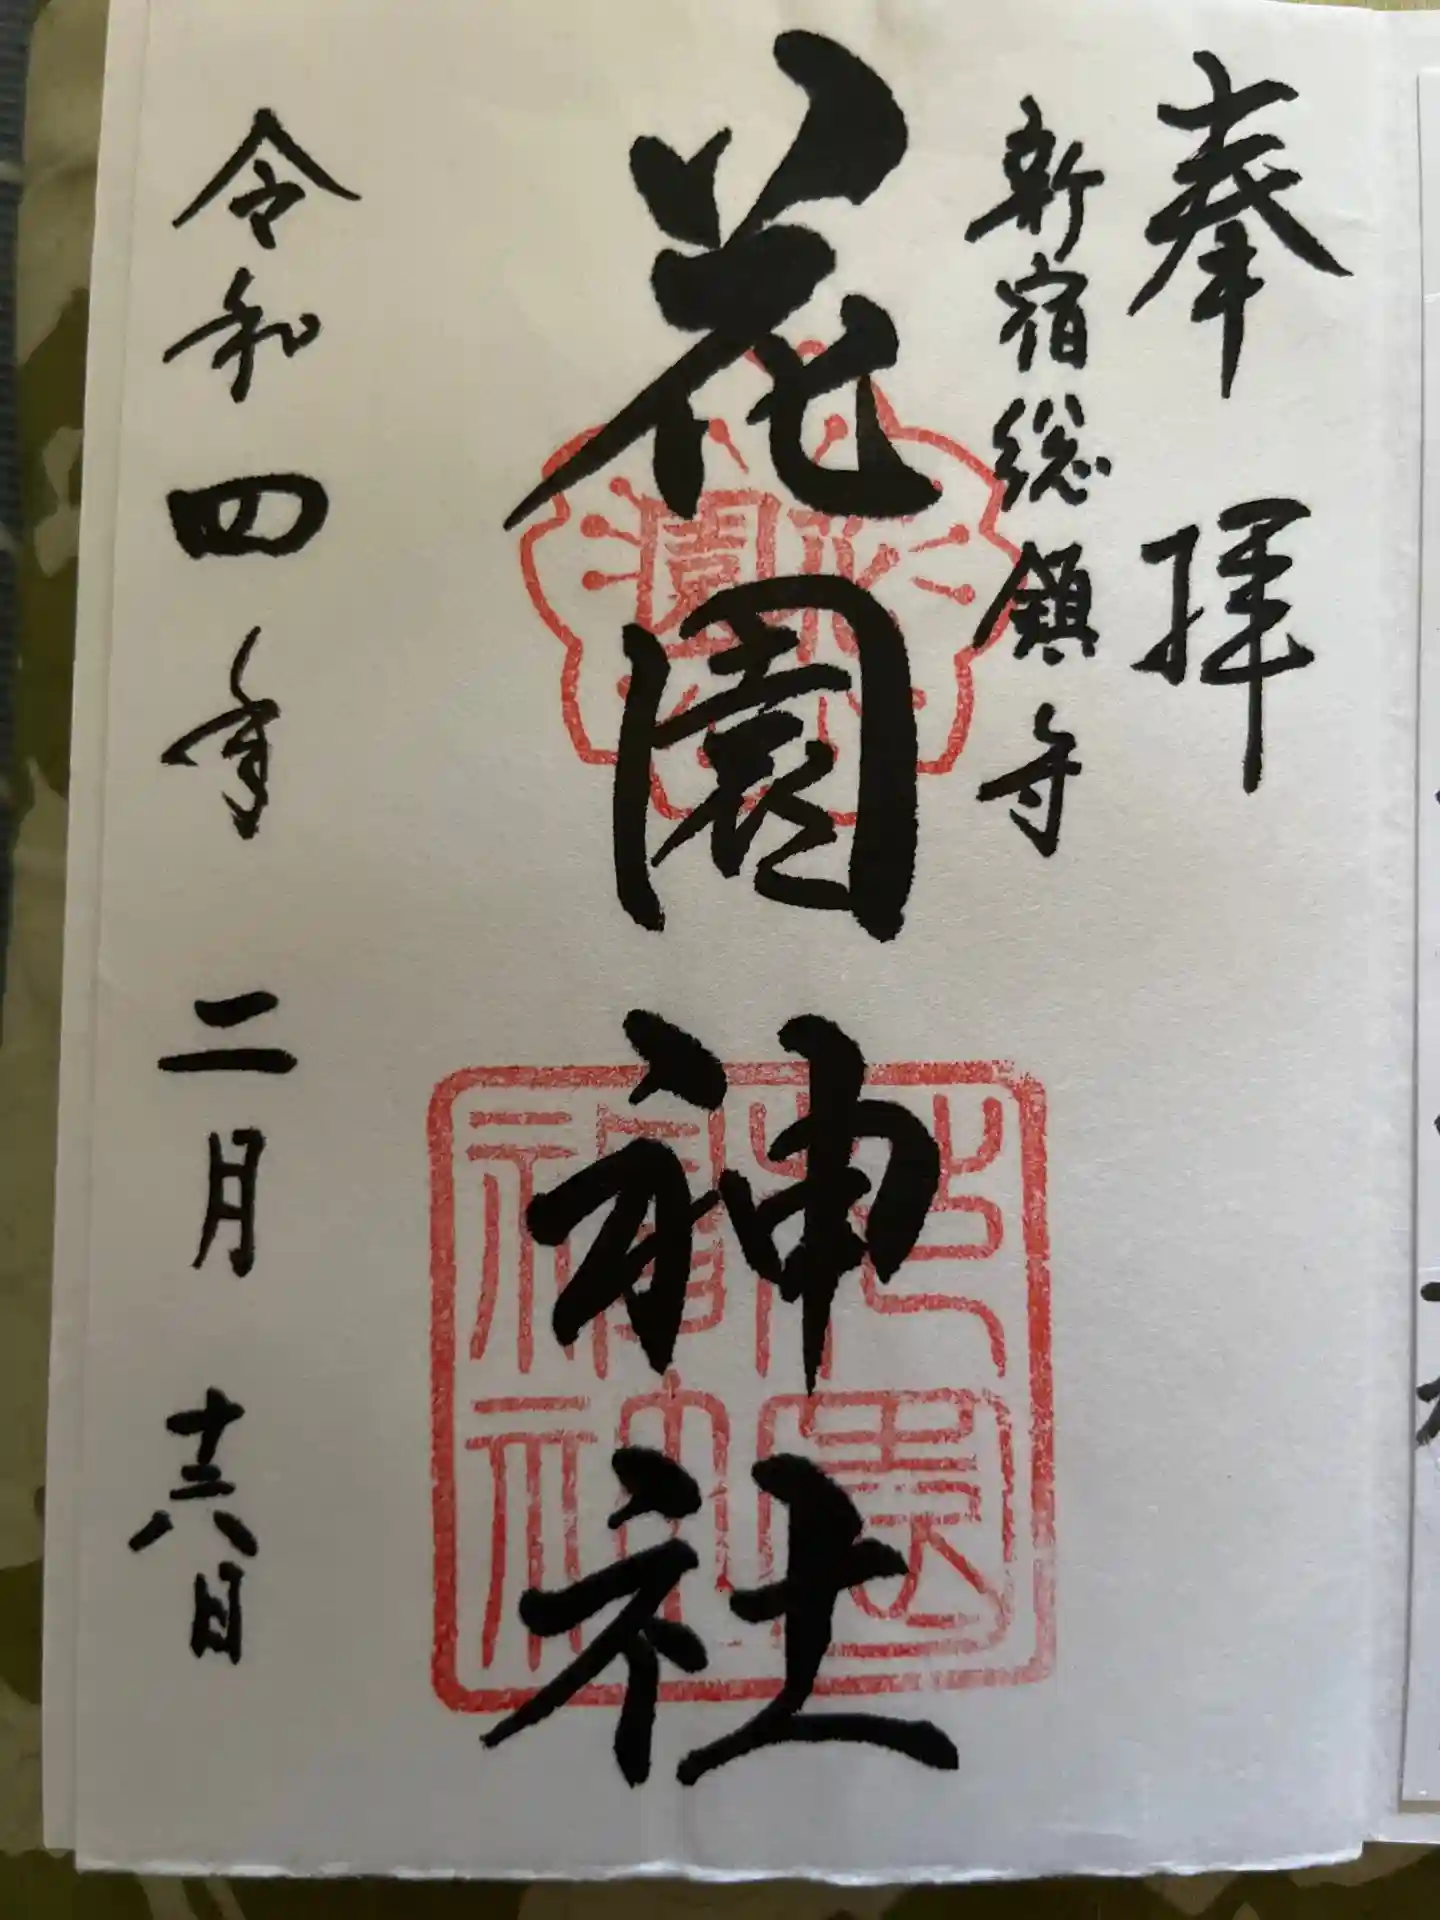 奉拝
新宿総鎮守
花園神社
令和四年二月十六日
花園
神社